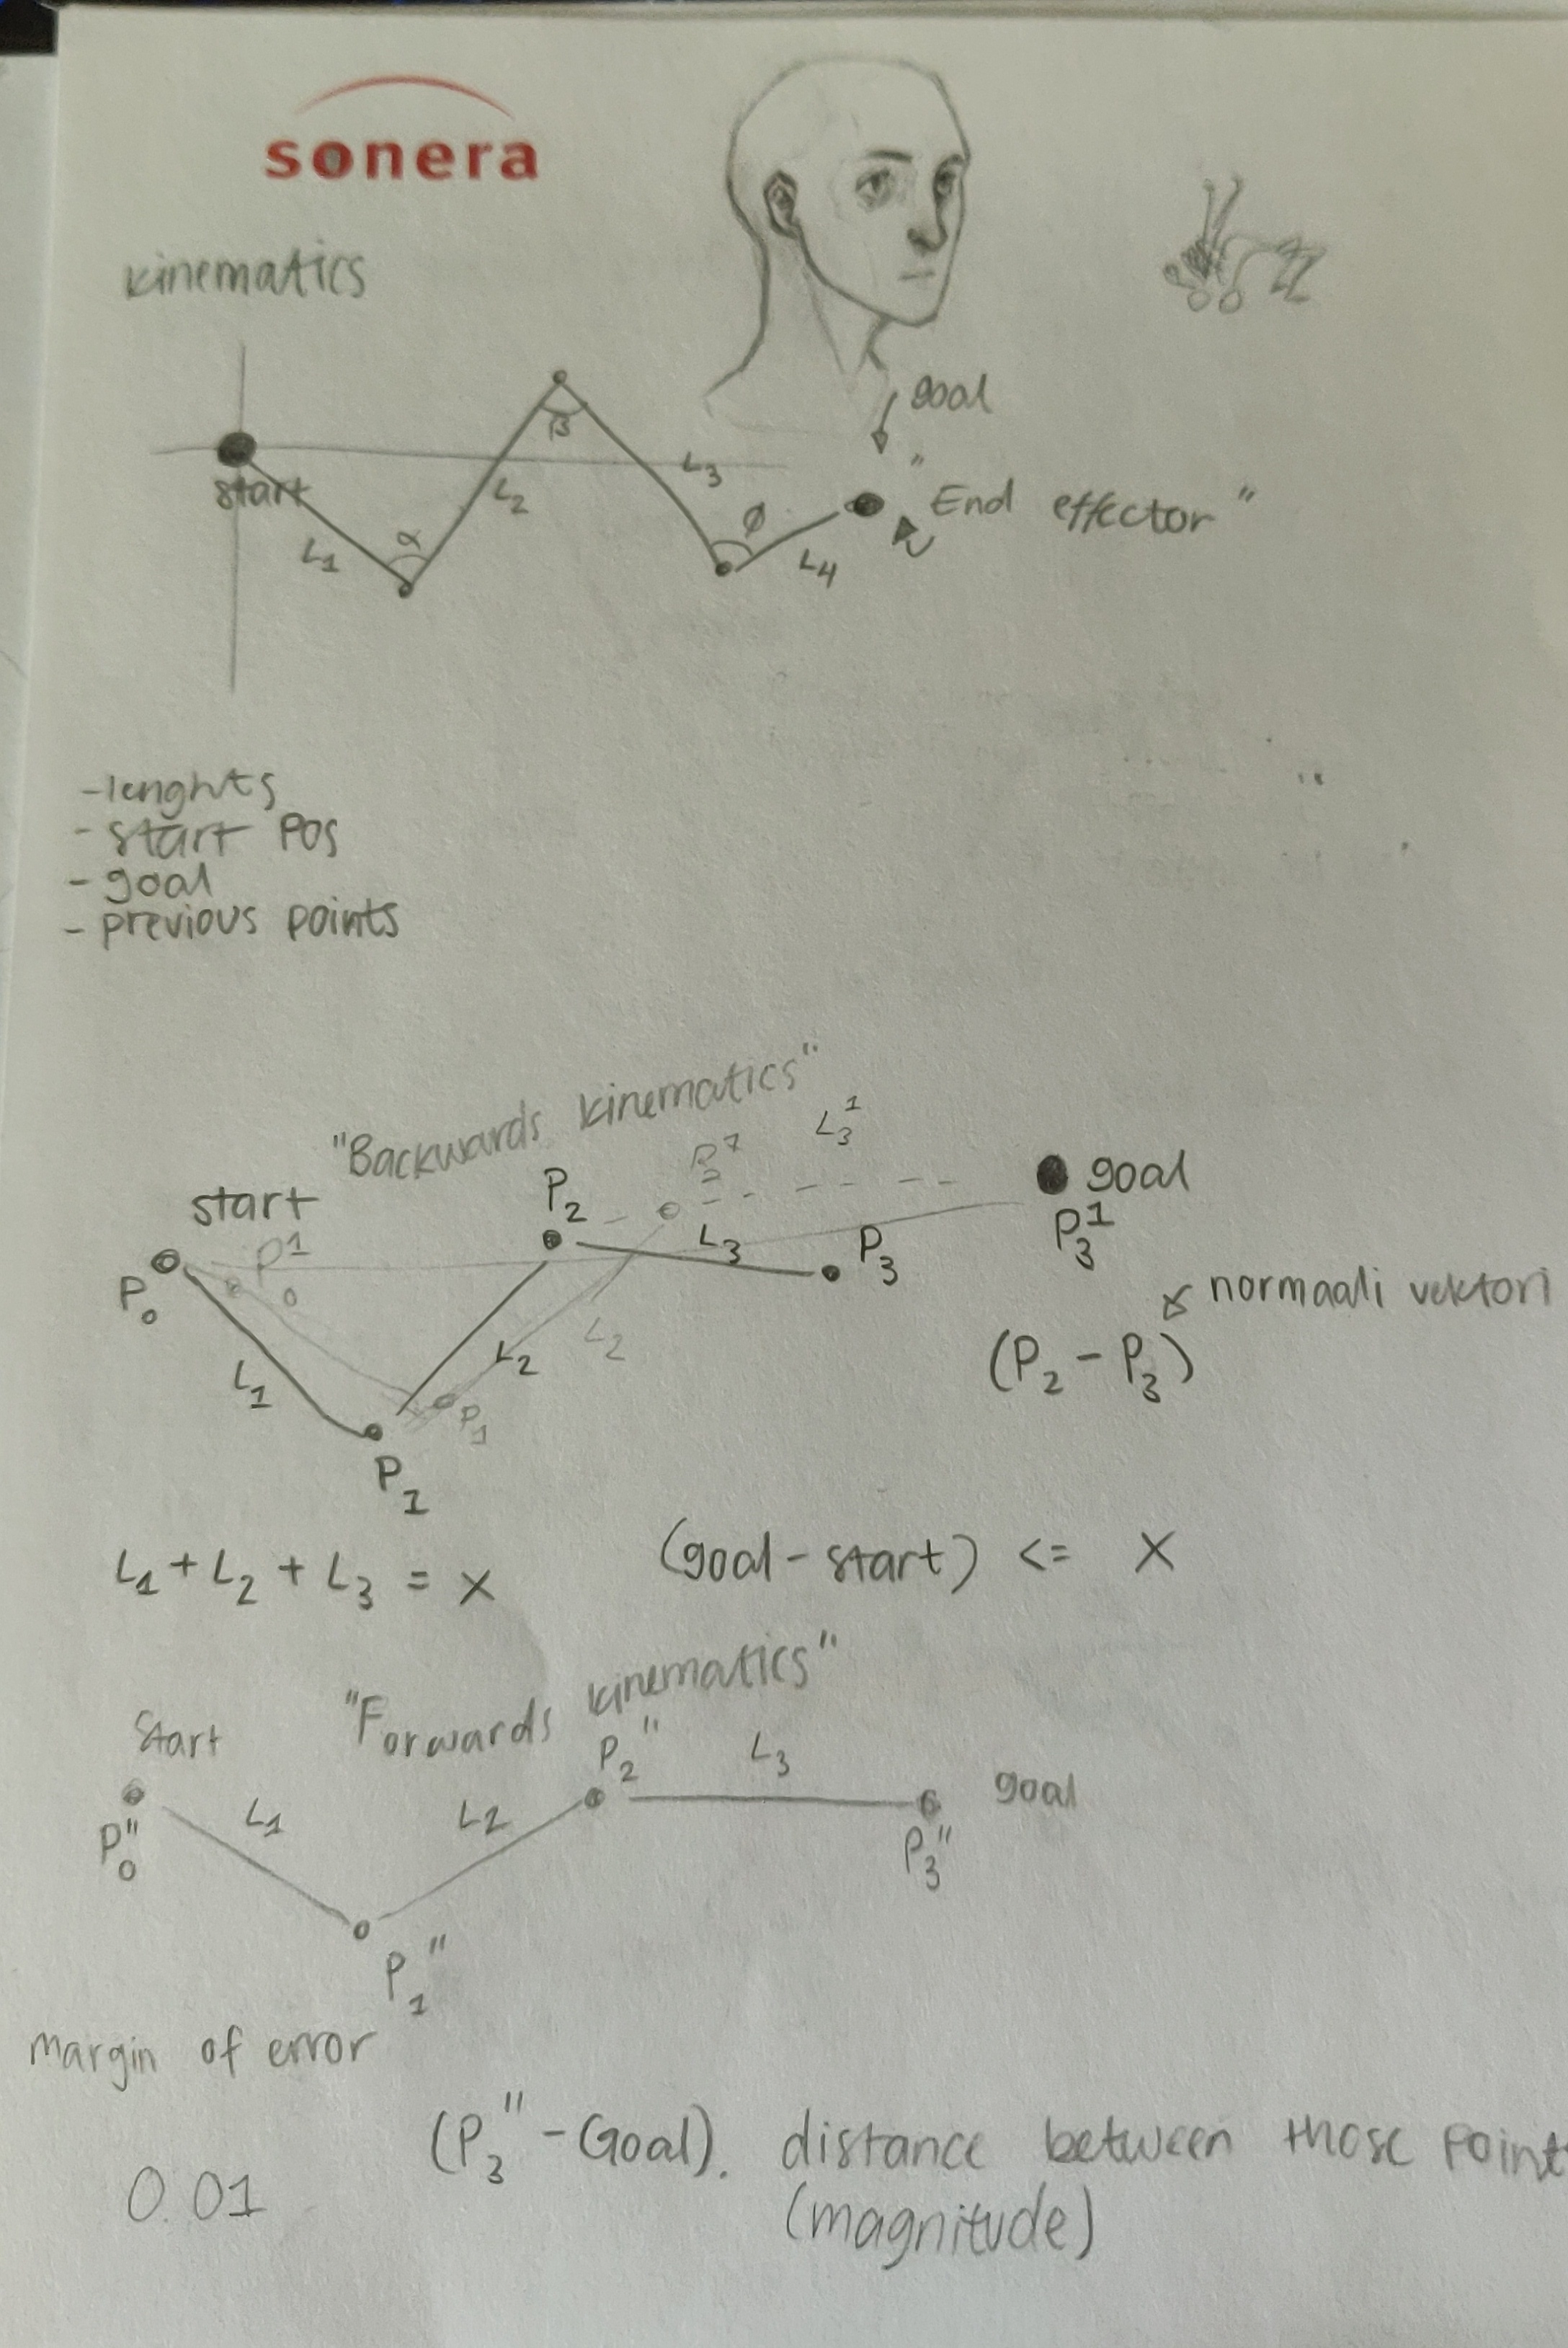 sonera
kinematics
goal
start
L1
α
L2
β
L3
Ø
L4
"End effector"
-lenghts
- start pos
- goal
- previous points
"Backwards kinematics"
start
P0
P0^1
P2
P2^1
L3^1
L3
P3
goal
P3^1
normaali vektori
(P2 - P3)
L1
L2
L2
P1
P1
L1 + L2 + L3 = x
(goal - start) <= x
"Forwards kinematics"
Start
P0"
L1
L2
P2"
L3
goal
P3"
P1"
margin of error
0.01
(P3" - Goal). distance between those point
(magnitude)